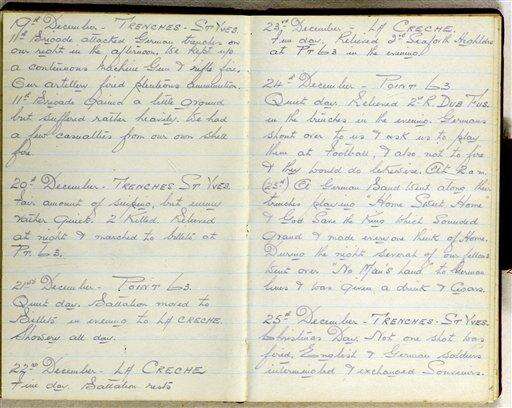 19th December - TRENCHES - ST YVES.
11th Brigade attacked German trenches on
our right in the afternoon. We kept up
a continuous Machine Gun & rifle fire.
Our artillery fired plenteous ammunition.
11th Brigade gained a little ground
but suffered rather heavily. We had
a few casualties from our own shell
fire.
20th December - TRENCHES ST YVES.
Fair amount of sniping, but enemy
rather quiet. 2 killed. Relieved
at night & marched to billets at
Pt 63.
21st December - POINT 63.
Quiet day. Battalion moved to
Billets in evening to LA CRECHE.
Showery all day.
22nd December - LA CRECHE
Fine day. Battalion rests
23rd December - LA CRECHE.
Fine day. Relieved 2nd Seaforth Highldrs
at Pt 63 in the evening.
24th December - POINT 63
Quiet day. Relieved 2nd R. DUB FUS.
in the trenches in the evening. Germans
shout over to us & ask us to play
them at football, & also not to fire
& they would do likewise. At 2 a.m.
(25th) a German Band went along their
trenches playing "Home Sweet Home
& God Save the King which sounded
grand & made everyone think of Home.
During the night several of our fellows
went over "No Mans Land" to German
lines & was given a drink & Cigars.
25th December - TRENCHES - ST YVES.
Christmas Day. Not one shot was
fired. English & German soldiers
intermingled & exchanged souvenirs.